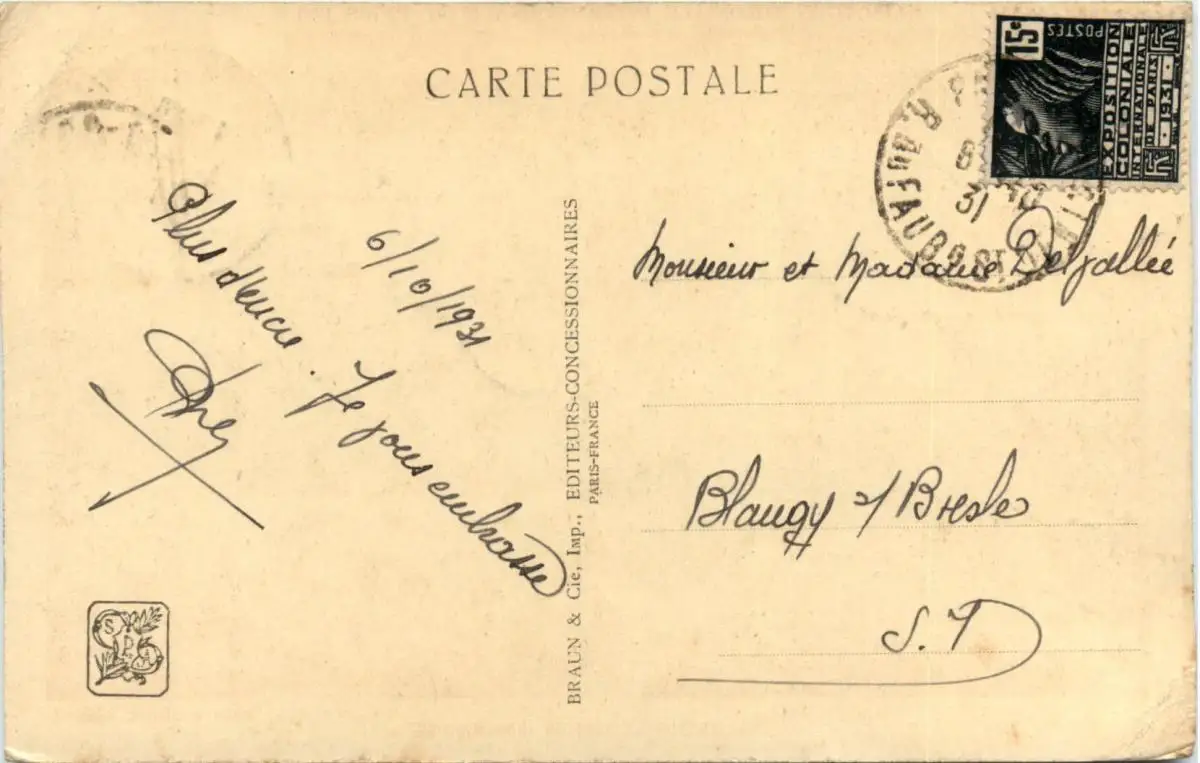 CARTE POSTALE
15c
POSTES
EXPOSITION
COLONIALE
INTERNATIONALE
DE PARIS
1931
31
6/10/1931
Je vous embrasse
BRAUN & Cie, Imp., EDITEURS-CONCESSIONNAIRES
PARIS-FRANCE
Monsieur et Madame Delvallée
Blangy s/ Bresle
S. I